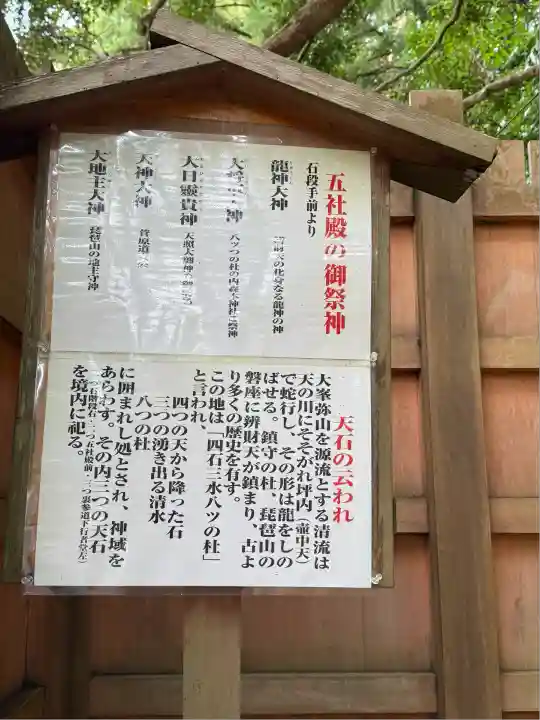 五社殿の御祭神
石段手前より
龍神大神
財天の化身なる龍神の神
大 大神
八ツの杜の内 神社 御祭神
大日靈貴神
天照大御神
天神大神
菅原道
大地主大神
琵琶山の地主守神
天石の云われ
大峯弥山を源流とする清流は
天の川にそそがれ坪内（壷中天）
で蛇行し、その形は龍をしの
ばせる。鎮守の杜、琵琶山の
磐座に辨財天が鎮まり、古よ
り多くの歴史を有す。
この地は「四石三水八ツの杜」
と言われ、
四つの天から降った石
三つの湧き出る清水
八つの杜
に囲まれし処とされ、神域を
あらわす。その内三つの天石
を境内に祀る。
一つ石階段右・二つ五社殿前・三つ裏参道下行者堂左）